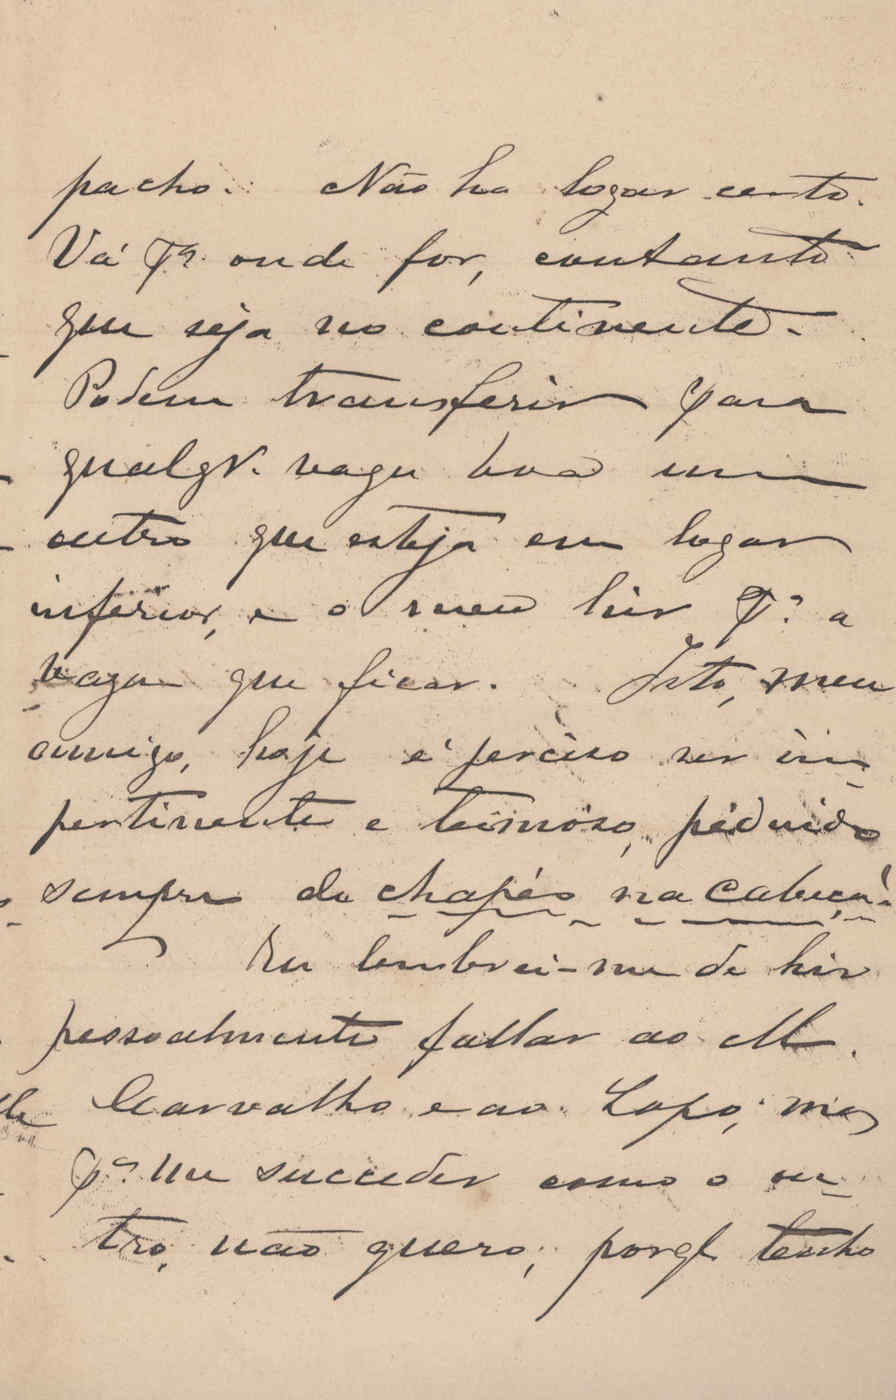 pacho. Não ha logar certo.
Vá pª onde for, contanto
que seja no continente.
Podem transferir para
qualqr. vaga boa um
outro que esteja em logar
inferior, e o meu hir pª a
vaga que ficar. Isto, meu
amigo, hoje é perciso ser im-
pertinente e teimoso, pedindo
sempre de chapéo na cabeça!
Eu lembrei-me de hir
pessoalmente fallar ao M.
Carvalho e ao Lopo; mas
pª me succeder como o ou-
tro, não quero; porq tenho